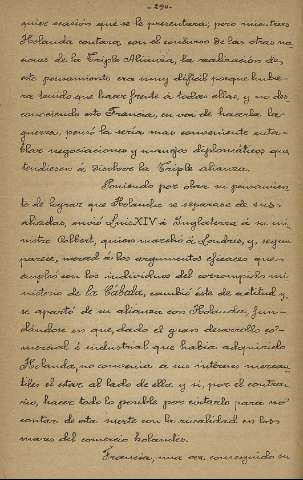 - 290 -
quier ocasión que se le presentara; pero mientras
Holanda contara, con el concurso de las otras na
ciones de la Triple Alianza, la realización de
este pensamiento era muy difícil porque hubie
ra tenido que hacer frente á todas ellas, y no des
conociendo esto Francia, en vez de hacerles la
guerra, pensó le sería mas conveniente enta-
blar negociaciones y manejos diplomáticos que
tendiesen á disolver la Triple alianza.
Poniendo por obra su pensamien
to de lograr que Holanda se separase de sus
aliadas, envió Luis XIV á Inglaterra á su mi
nistro Colbert, quien marchó á Londres, y, segun
parece, merced á los argumentos eficaces que
empleó con los individuos del corrompido mi
nisterio de la Cábala, cambió éste de actitud y
se apartó de su alianza con Holanda, fun-
dándose en que, dado el gran desarrollo co-
mercial é industrial que habia adquirido
Holanda, no convenia á sus intéreses mercan
tiles el estar al lado de ella y si, por el contra
rio, hacer todo lo posible por evitarlo para no
contar de esta suerte con la rivalidad en los
mares del comercio holandés.
Francia, una vez conseguido su